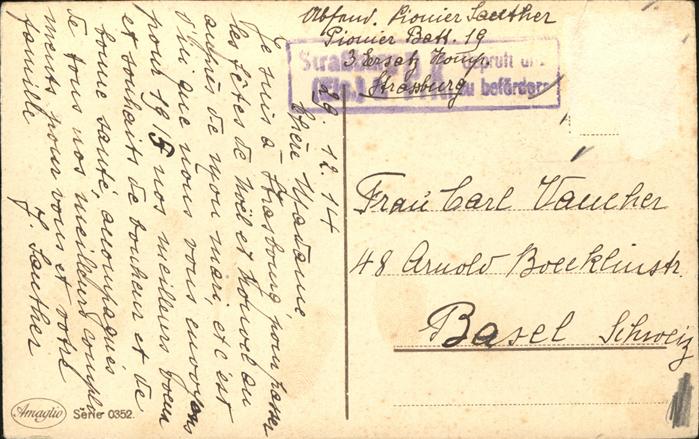 Absend. Pionier Sauther
Pionier Batt. 19
3 Ersatz Komp.
Strassburg
Strassburg geprüft und
(Els.) zu befördern
29 12. 14
Chère Madame
Je suis à Strasbourg, pour passer
les fêtes de Noël et Nouvel an
auprès de mon mari, et c'est
d'ici que nous vous envoyons
pour 1915 nos meilleurs voeux
et souhaits de bonheur et de
bonne santé, accompagnés
de tous nos meilleurs compli-
ments pour vous et votre
famille
J. Sauther
Frau Carl Vaucher
48 Arnold Boecklinstr.
Basel Schweiz
Amaglio Serie 0352.